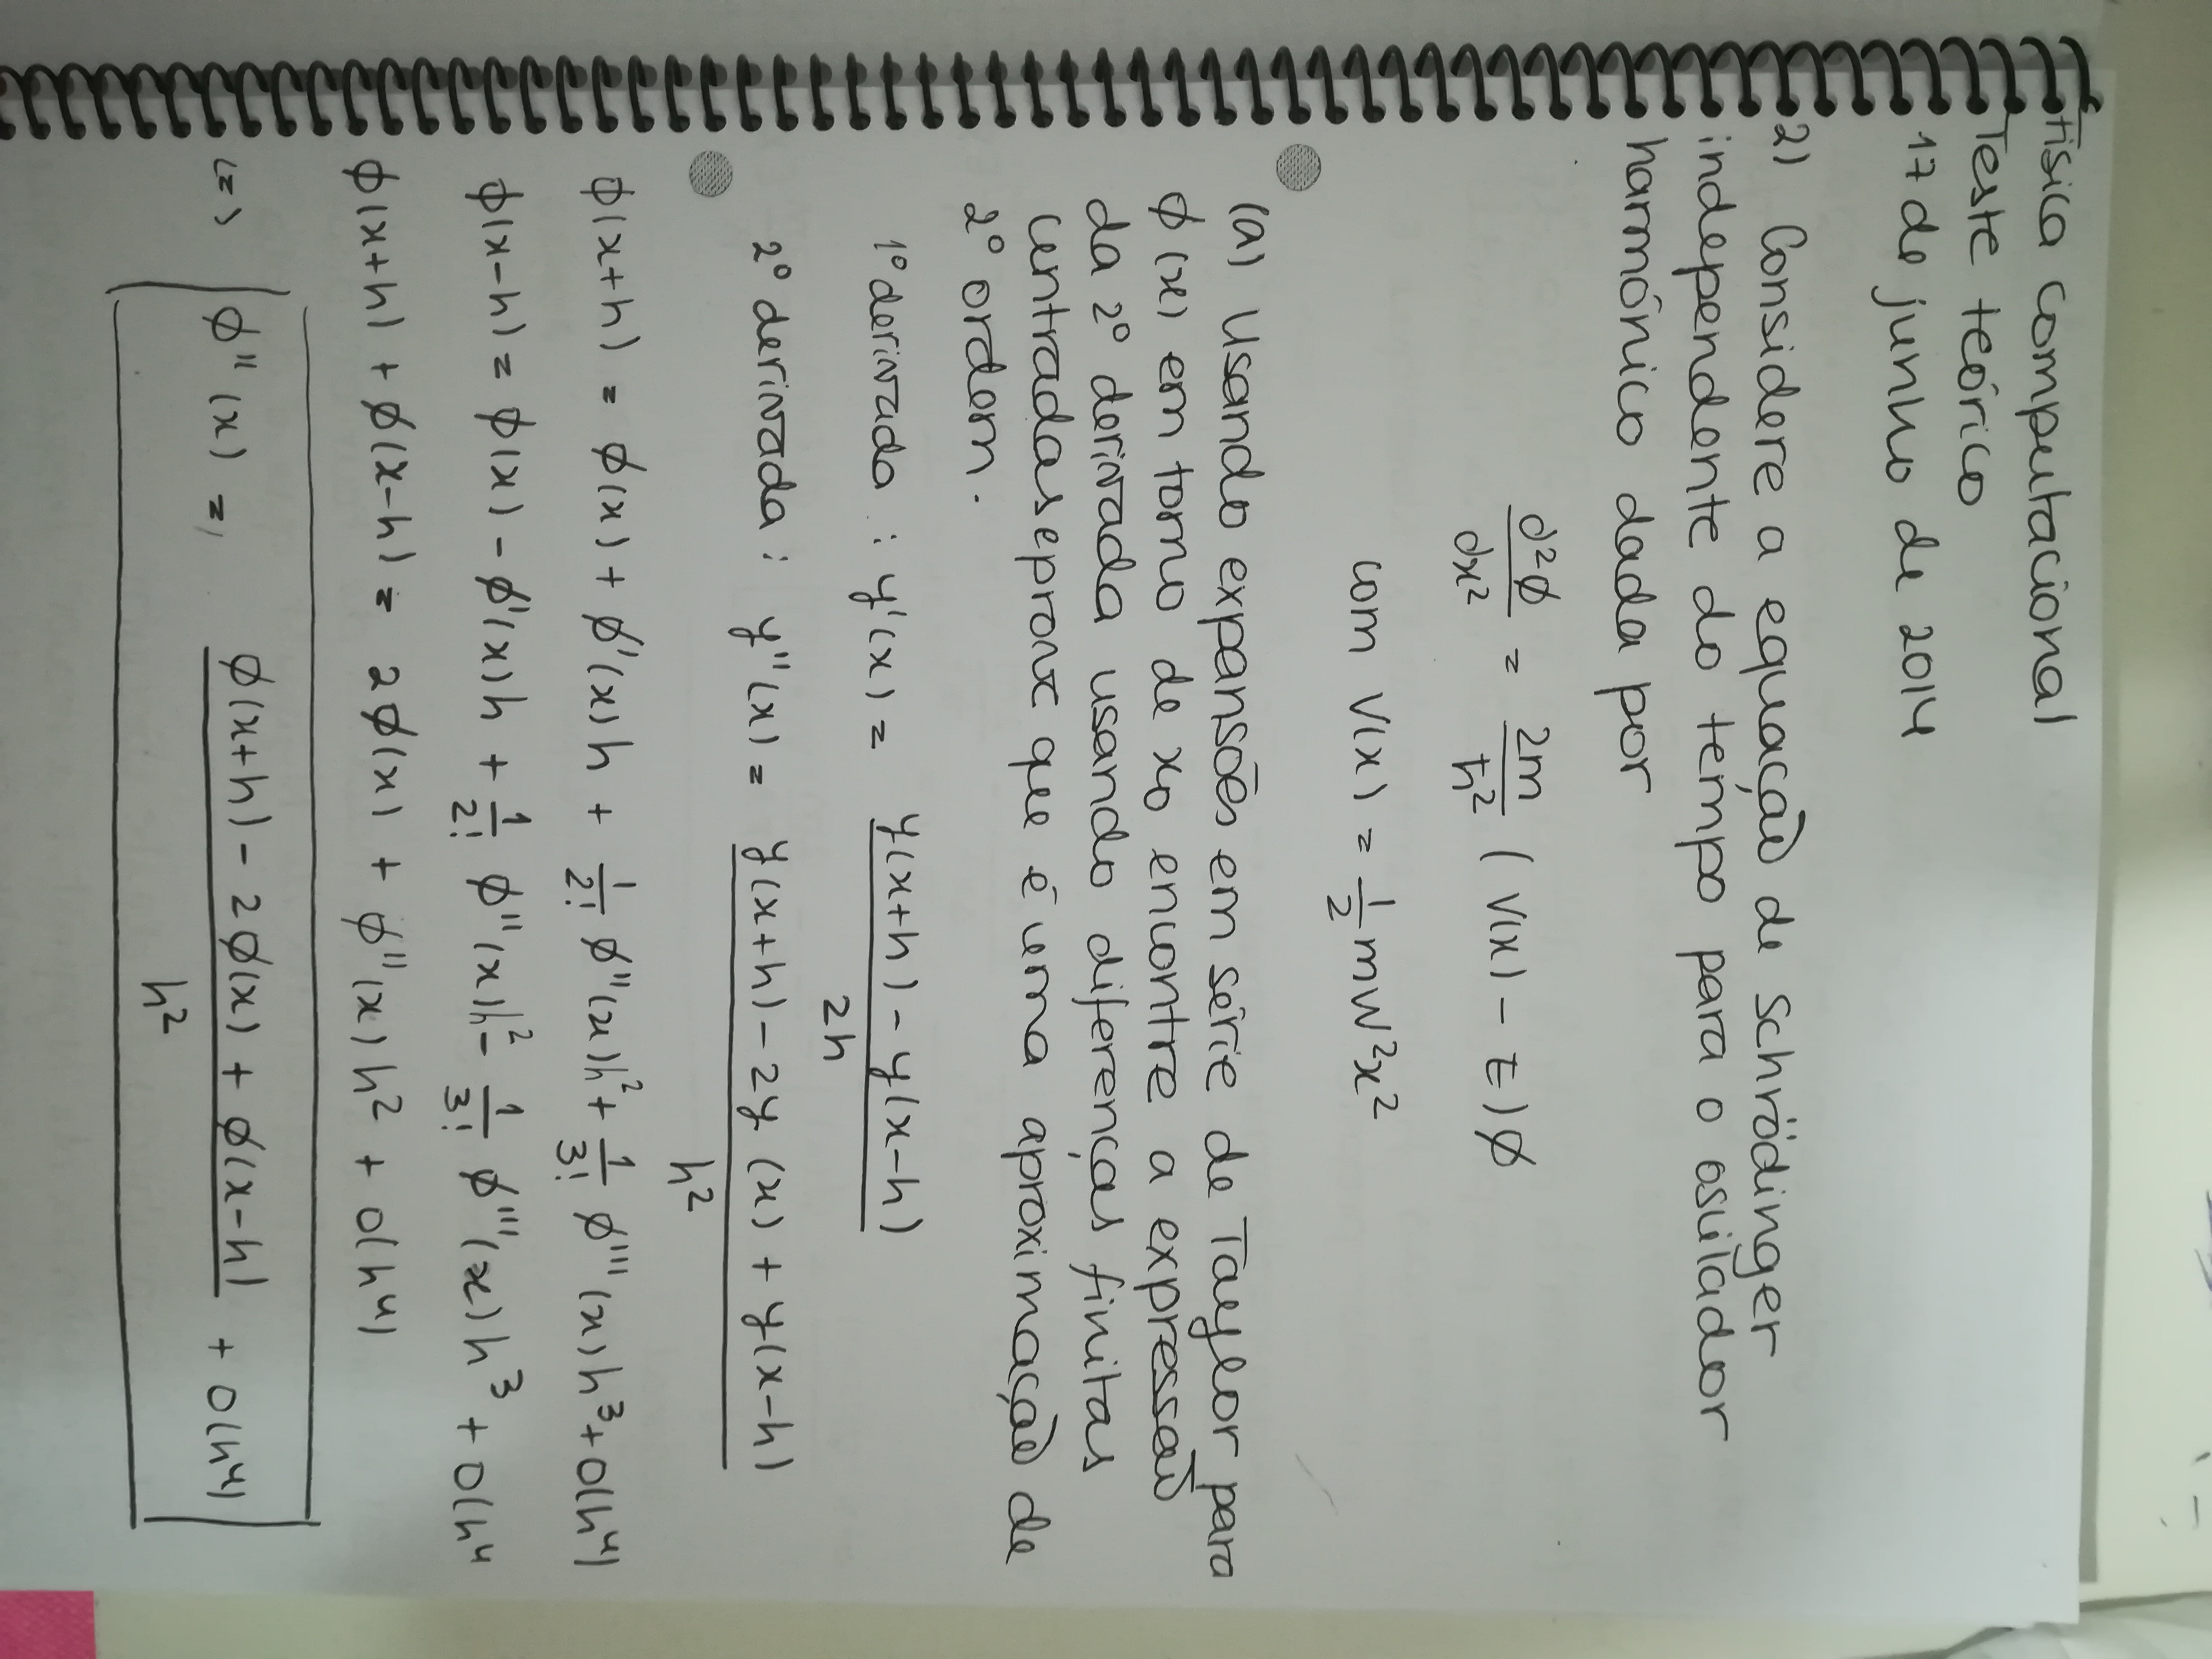 Física computacional
Teste teórico
17 de junho de 2014
2) Considere a equação de Schrödinger
independente do tempo para o oscilador
harmónico dada por
d²ø/dx² = 2m/ħ² ( V(x) - E) ø
com V(x) = 1/2 mW²x²
(a) Usando expansões em série de Taylor para
ø(x) em torno de x0 encontre a expressão
da 2º derivada usando diferenças finitas
centradas e prove que é uma aproximação de
2º ordem.
1º derivada : y'(x) = y(x+h) - y(x-h) / 2h
2º derivada : y''(x) = y(x+h) - 2y (x) + y(x-h) / h²
ø(x+h) = ø(x) + ø'(x) h + 1/2! ø''(x)h² + 1/3! ø'''(x) h³ + O(h⁴)
ø(x-h) = ø(x) - ø'(x) h + 1/2! ø''(x)h² - 1/3! ø'''(x) h³ + O(h⁴
ø(x+h) + ø(x-h) = 2ø(x) + ø''(x) h² + O(h⁴)
(=) ø''(x) = ø(x+h) - 2ø(x) + ø(x-h) / h² + O(h⁴)